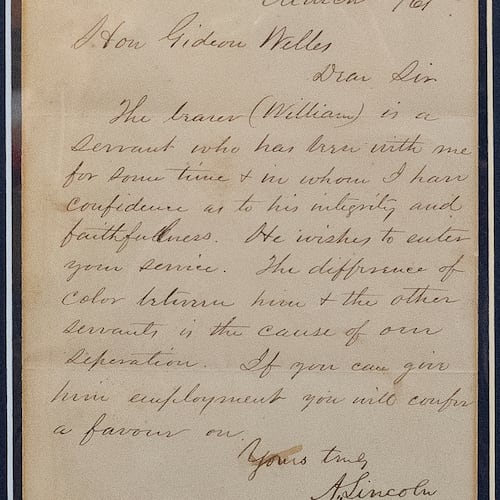 March /61.
Hon Gideon Welles
Dear Sir
The bearer (William) is a
servant who has been with me
for some time & in whom I have
confidence as to his integrity and
faithfullness. He wishes to enter
your service. The difference of
color between him & the other
servants is the cause of our
seperation. If you can give
him employment you will confer
a favour on
Yours truly
A. Lincoln